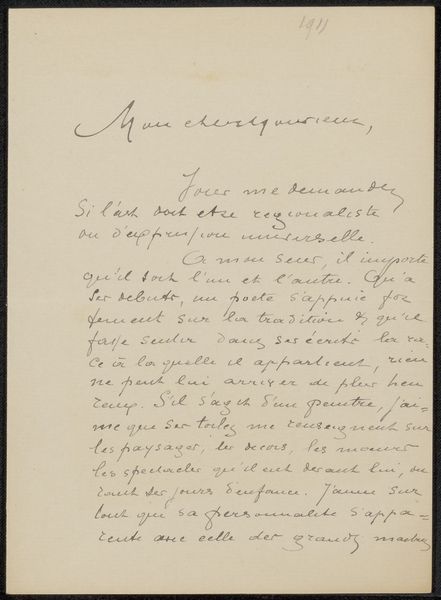 1911
Mon cher Monsieur,
Vous me demandez
Si l'art doit etre regionaliste
ou d'expression universelle.
A mon sens, il importe
qu'il soit l'un et l'autre. Qu'a
ses debuts, un poete s'appuie for
tement sur la tradition & qu'il
fasse sentir dans ses écrits la ra-
ce à laquelle il appartient, rien
ne peut lui arriver de plus heu
reux. S'il s'agit d'un peintre, j'ai-
me que ses toiles me renseignent sur
les paysages, les decors, les mœurs
les spectacles qu'il eut devant lui, du
rant ses jours d'enfance. J'aime sur
tout que sa personnalité s'appa=
rente avec celle des grands maitres